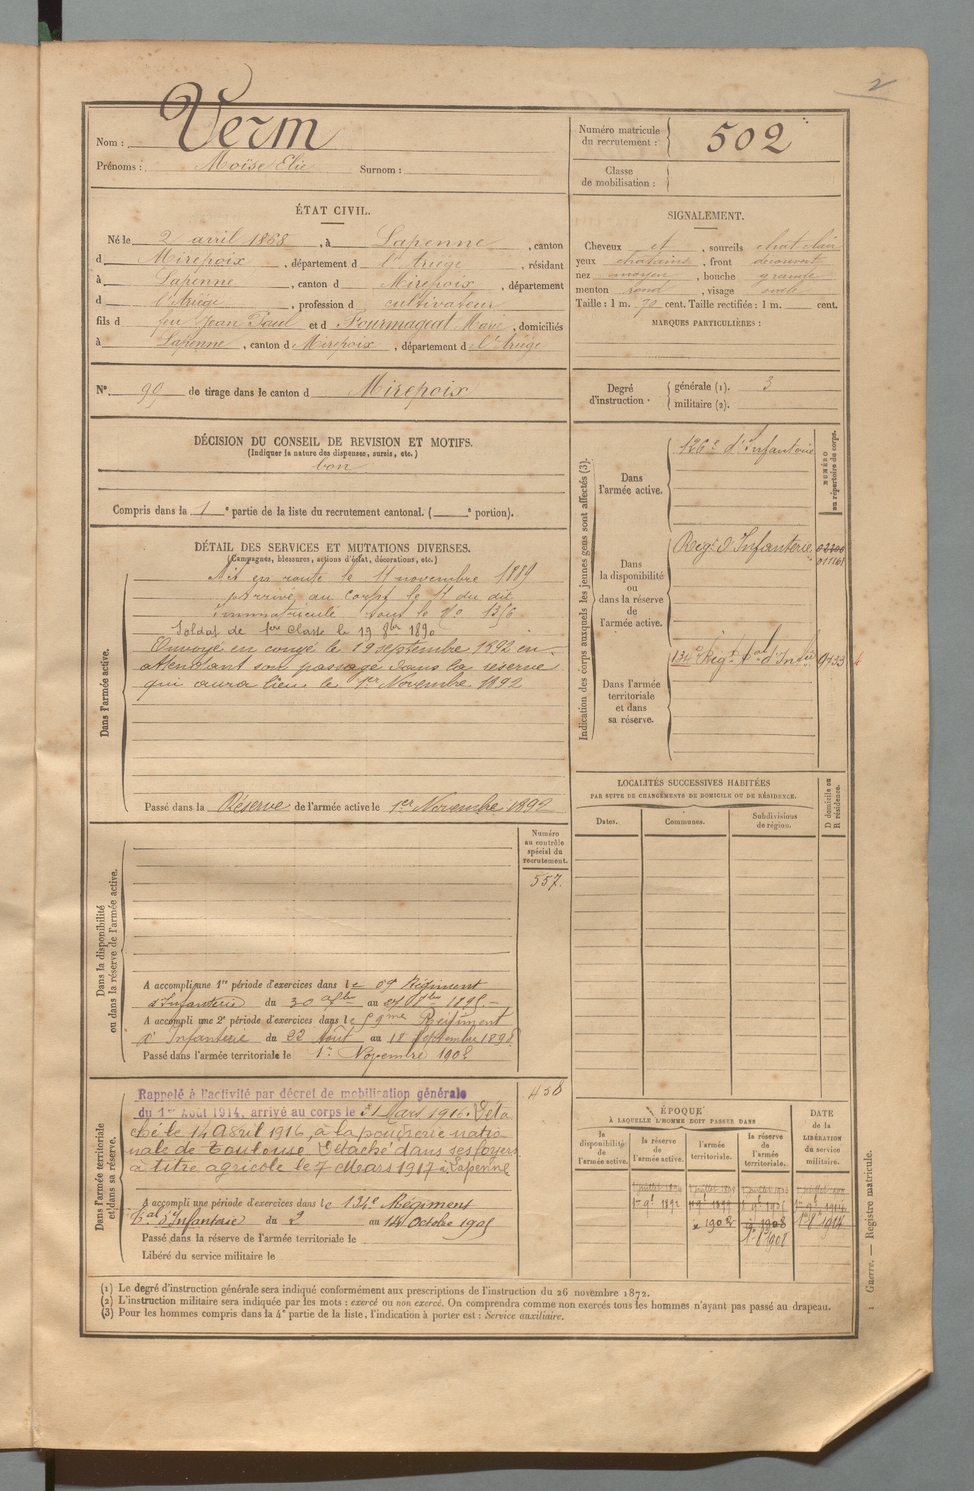 2
Nom : Verm
Prénoms : Moïse Elie Surnom :
Numéro matricule du recrutement : 502
Classe de mobilisation :
ÉTAT CIVIL.
Né le 2 avril 1868, à Lapenne, canton
d Mirepoix, département d l'Ariège, résidant
à Lapenne, canton d Mirepoix, département
d l'Ariège, profession d cultivateur
fils d feu Jean Paul et d Fourmageat Marie, domiciliés
à Lapenne, canton d Mirepoix, département d l'Ariège
N° 99 de tirage dans le canton d Mirepoix
SIGNALEMENT.
Cheveux et, sourcils chat clair
yeux chatains, front découvert
nez moyen, bouche grande
menton rond, visage ovale
Taille : 1 m. 70 cent. Taille rectifiée : 1 m. cent.
MARQUES PARTICULIÈRES :
Degré d'instruction. générale (1). 3
militaire (2).
DÉCISION DU CONSEIL DE REVISION ET MOTIFS.
(Indiquer la nature des dispenses, sursis, etc.)
bon
Compris dans la 1e partie de la liste du recrutement cantonal. (e portion).
DÉTAIL DES SERVICES ET MUTATIONS DIVERSES.
(Campagnes, blessures, actions d'éclat, décorations, etc.)
Dans l'armée active.
Mis en route le 11 novembre 1889
arrivé au corps le 11 du dit
immatriculé sous le N° 1356
Soldat de 1ère classe le 19 8bre 1890
Envoyé en congé le 19 septembre 1892 en
attendant son passage dans la réserve
qui aura lieu le 1er Novembre 1892
Passé dans la Réserve de l'armée active le 1er Novembre 1892
Indication des corps auxquels les jeunes gens sont affectés (3).
NUMÉRO au répertoire du corps.
Dans l'armée active.
126e d'Infanterie
Dans la disponibilité ou dans la réserve de l'armée active.
Regt d'Infanterie
Dans l'armée territoriale et dans sa réserve.
134e Regt tal d'Infie
LOCALITÉS SUCCESSIVES HABITÉES
PAR SUITE DE CHANGEMENTS DE DOMICILE OU DE RÉSIDENCE.
D domicile ou R résidence.
Dates. Communes. Subdivisions de région.
Numéro au contrôle spécial du recrutement.
557.
Dans la disponibilité ou dans la réserve de l'armée active.
A accompli une 1re période d'exercices dans le 59 Régiment
d'Infanterie du 30 au 1895
A accompli une 2e période d'exercices dans le 59me Régiment
d'Infanterie du 22 Août au 18 septembre 1898
Passé dans l'armée territoriale le 1er Novembre 1902
458
Dans l'armée territoriale et dans sa réserve.
Rappelé à l'activité par décret de mobilisation générale
du 1er Août 1914, arrivé au corps le 31 Mars 1916. Déta
ché le 14 Avril 1916, à la poudrerie natio
nale de Toulouse. Détaché dans ses foyers
à titre agricole le 7 Mars 1917 à Lapenne
A accompli une période d'exercices dans le 134e Régiment
tal d'Infanterie du 2 au 14 Octobre 1905
Passé dans la réserve de l'armée territoriale le
Libéré du service militaire le
ÉPOQUE
À LAQUELLE L'HOMME DOIT PASSER DANS
la disponibilité de l'armée active.
la réserve de l'armée active.
l'armée territoriale.
la réserve de l'armée territoriale.
DATE de la LIBÉRATION du service militaire.
(1) Le degré d'instruction générale sera indiqué conformément aux prescriptions de l'instruction du 26 novembre 1872.
(2) L'instruction militaire sera indiquée par les mots : exercé ou non exercé. On comprendra comme non exercés tous les hommes n'ayant pas passé au drapeau.
(3) Pour les hommes compris dans la 4e partie de la liste, l'indication à porter est : Service auxiliaire.
1 Guerre. — Registre matricule.